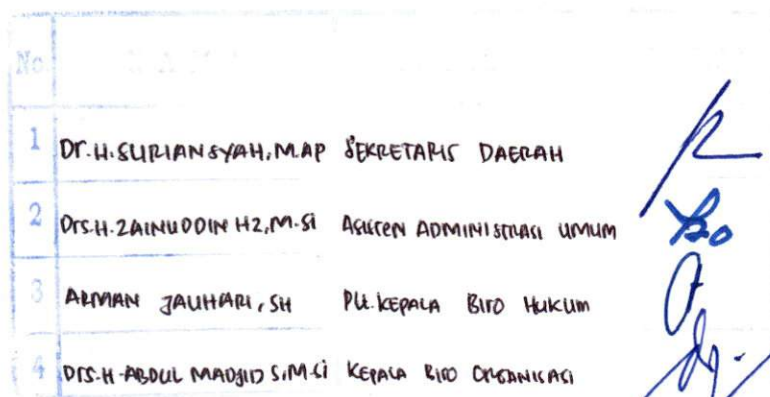 No
1 Dr. H. SURIANSYAH, M.AP SEKRETARIS DAERAH
2 Drs. H. ZAINUDDIN HZ, M.Si ASISTEN ADMINISTRASI UMUM
3 ARMAN JAUHARI, SH Plt. KEPALA BIRO HUKUM
4 Drs. H. ABDUL MADJID S, M.Si KEPALA BIRO ORGANISASI